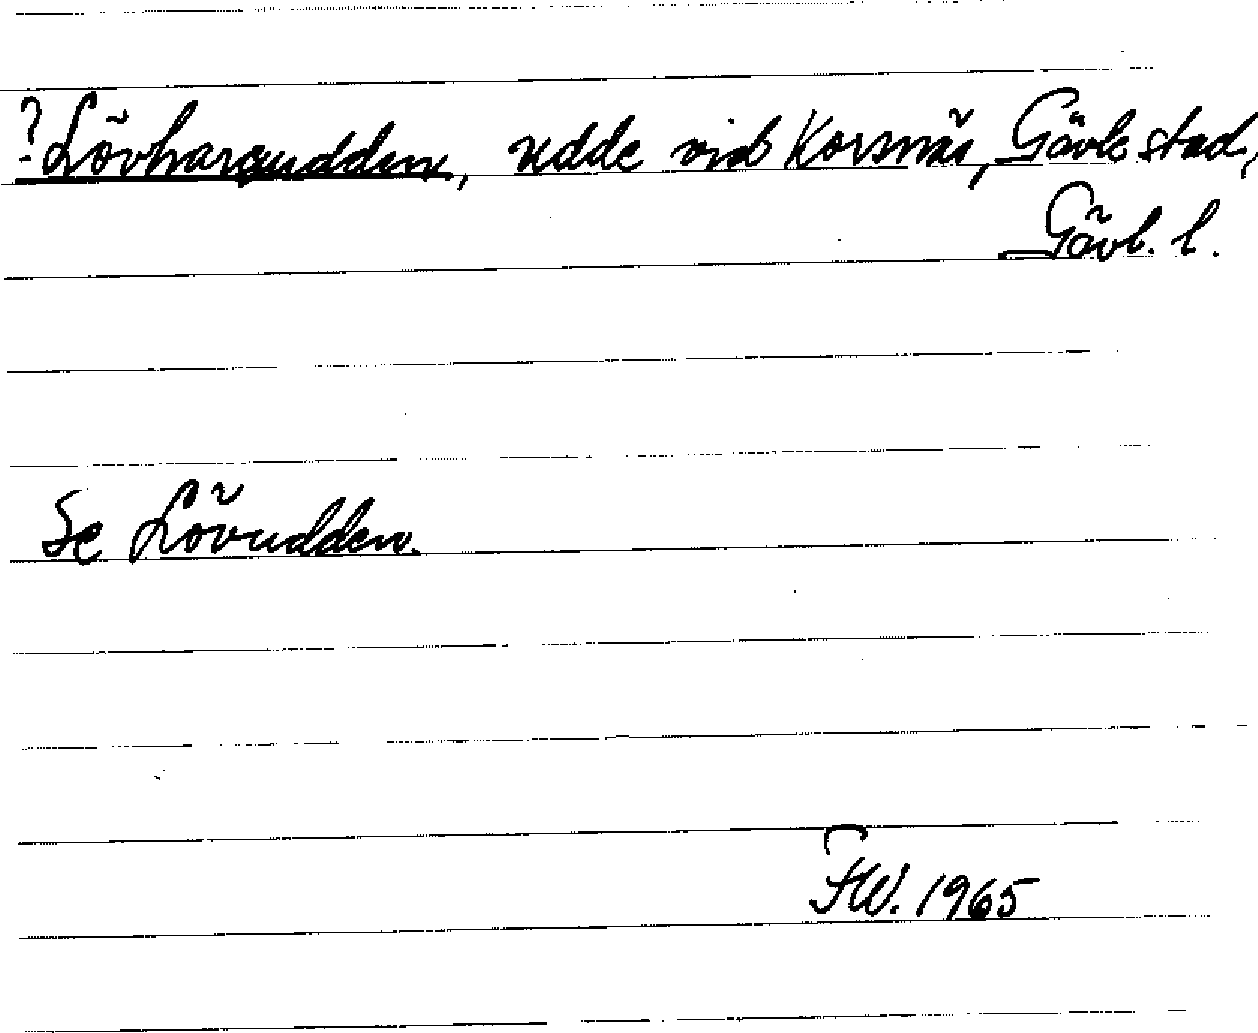 ? Lövharsudden, udde vid Korsnäs, Gävle stad,
Gävl. l.
Se Lövudden.
FW. 1965